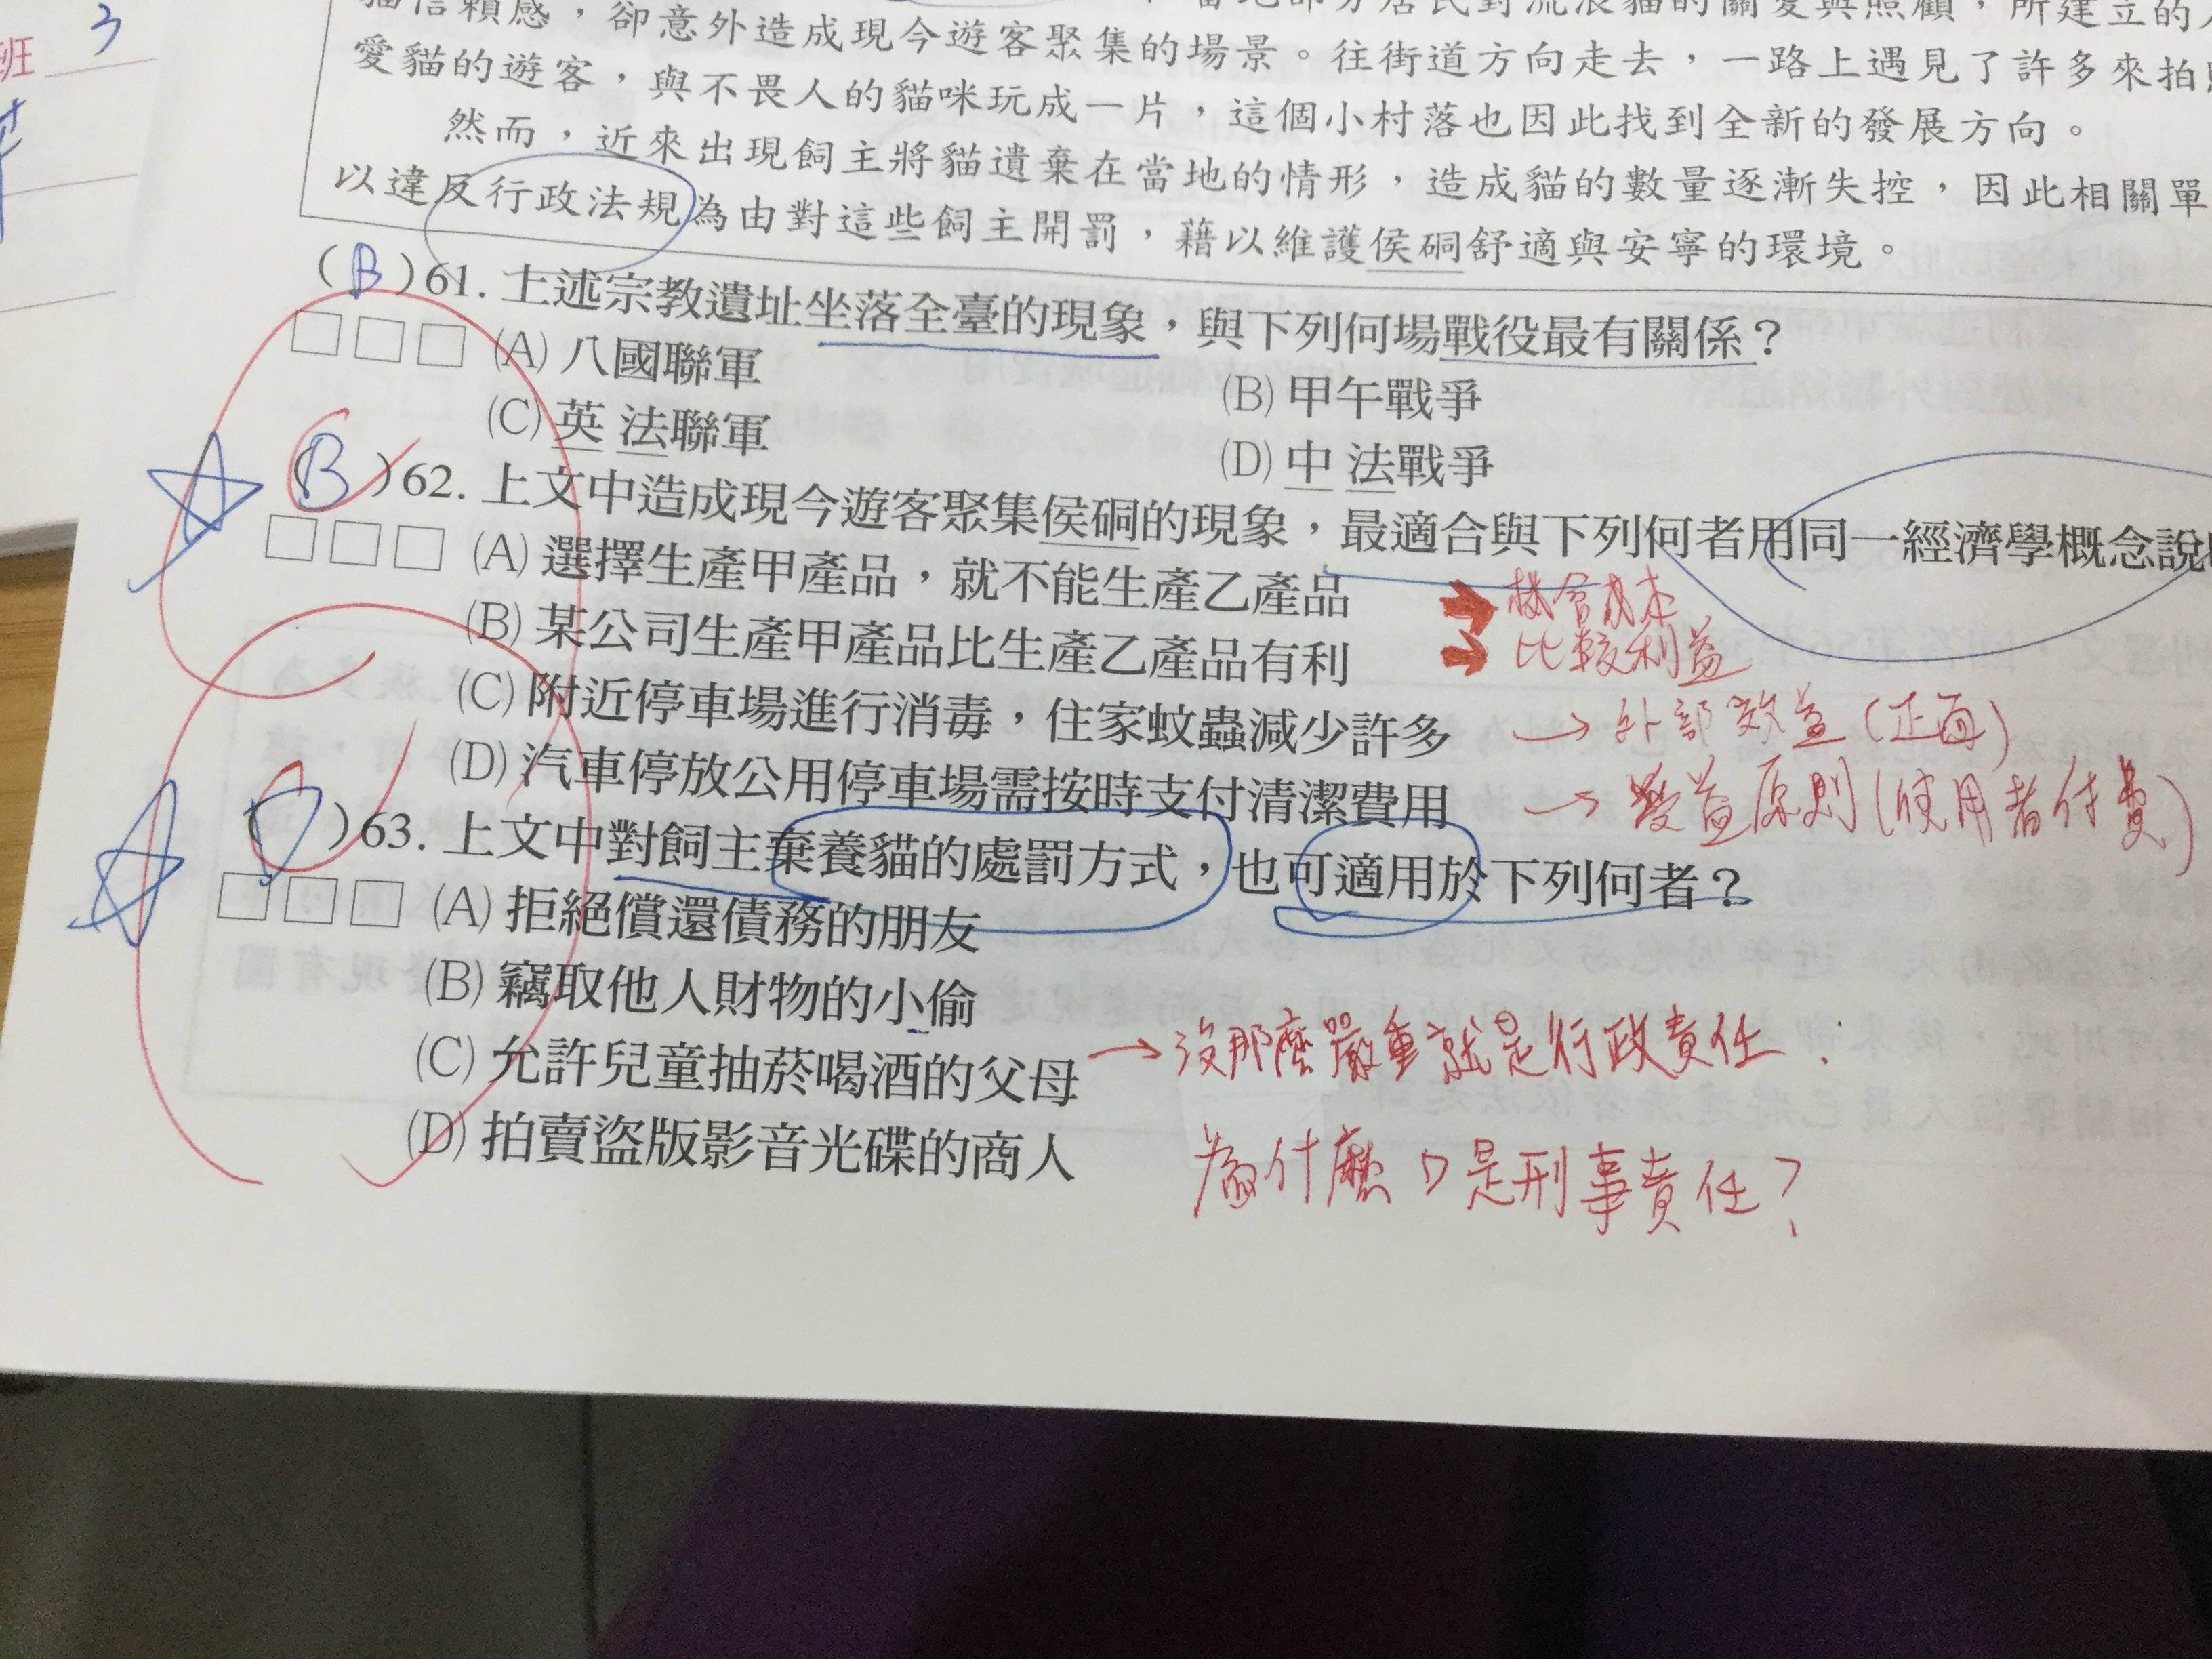 班 3
貓信賴感，卻意外造成現今遊客聚集的場景。往街道方向走去，一路上遇見了許多來拍
當地部分居民對流浪貓的關愛與照顧，所建立的
愛貓的遊客，與不畏人的貓咪玩成一片，這個小村落也因此找到全新的發展方向。
然而，近來出現飼主將貓遺棄在當地的情形，造成貓的數量逐漸失控，因此相關單
以違反行政法規為由對這些飼主開罰，藉以維護侯硐舒適與安寧的環境。
(B)61. 上述宗教遺址坐落全臺的現象，與下列何場戰役最有關係？
□□□ (A) 八國聯軍 (B) 甲午戰爭
(C) 英 法聯軍 (D) 中 法戰爭
(B)62. 上文中造成現今遊客聚集侯硐的現象，最適合與下列何者用同一經濟學概念說
□□□ (A) 選擇生產甲產品，就不能生產乙產品 → 機會成本
(B) 某公司生產甲產品比生產乙產品有利 → 比較利益
(C) 附近停車場進行消毒，住家蚊蟲減少許多 → 外部效益(正面)
(D) 汽車停放公用停車場需按時支付清潔費用 → 受益原則(使用者付費)
(D)63. 上文中對飼主棄養貓的處罰方式，也可適用於下列何者？
□□□ (A) 拒絕償還債務的朋友
(B) 竊取他人財物的小偷
(C) 允許兒童抽菸喝酒的父母 → 沒那麼嚴重就是行政責任
(D) 拍賣盜版影音光碟的商人
為什麼 D是刑事責任？